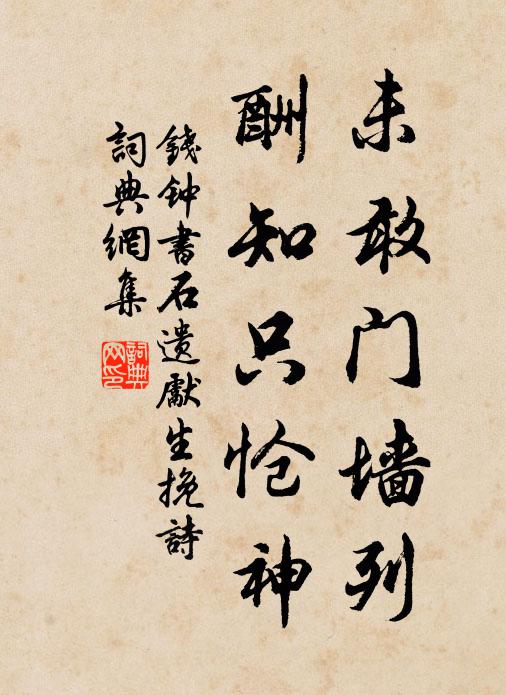 未敢门墙列
酬知只怆神
錢钟書石遗獻生挽詩
詞典網集
詞典网印